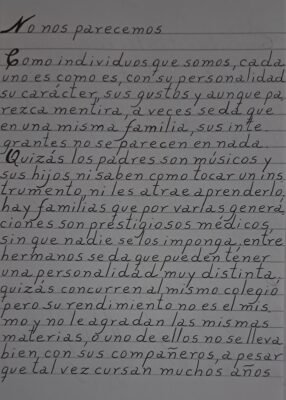 No nos parecemos
Como individuos que somos, cada
uno es como es, con su personalidad
su carácter, sus gustos y aunque pa
rezca mentira, a veces se da que
en una misma familia, sus inte
grantes no se parecen en nada.
Quizás los padres son músicos y
sus hijos ni saben como tocar un ins
trumento, ni les atrae aprenderlo,
hay familias que por varias genera
ciones son prestigiosos médicos,
sin que nadie se los imponga, entre
hermanos se da que pueden tener
una personalidad muy distinta,
quizás concurren al mismo colegio
pero su rendimiento no es el mis
mo y no le agradan las mismas
materias, o uno de ellos no se lleva
bien con sus compañeros, a pesar
que tal vez cursan muchos años